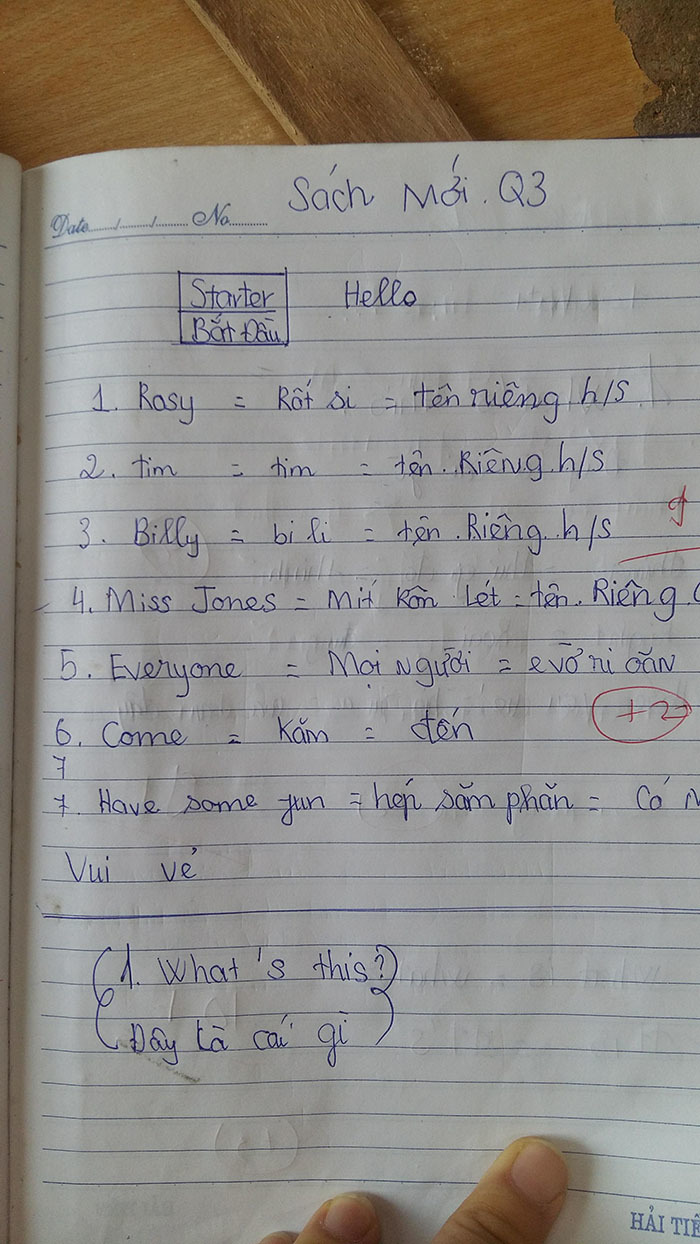 Sách Mới. Q3
Date ....../....../...... No ............
Starter Hello
Bắt Đầu
1. Rosy = Rốt si = tên riêng h/s
2. tim = tim = tên. Riêng. h/s
3. Billy = bi li = tên. Riêng. h/s
4. Miss Jones = Mít Kôn Lét = tên. Riêng (
5. Everyone = Mọi người = evờ ri oăn
+2
6. Come = Kăm = đến
7
7. Have some fun = hep săm phăn = Có N
Vui vẻ
(1. What's this?)
(Đây là cái gì)
HẢI TIẾ